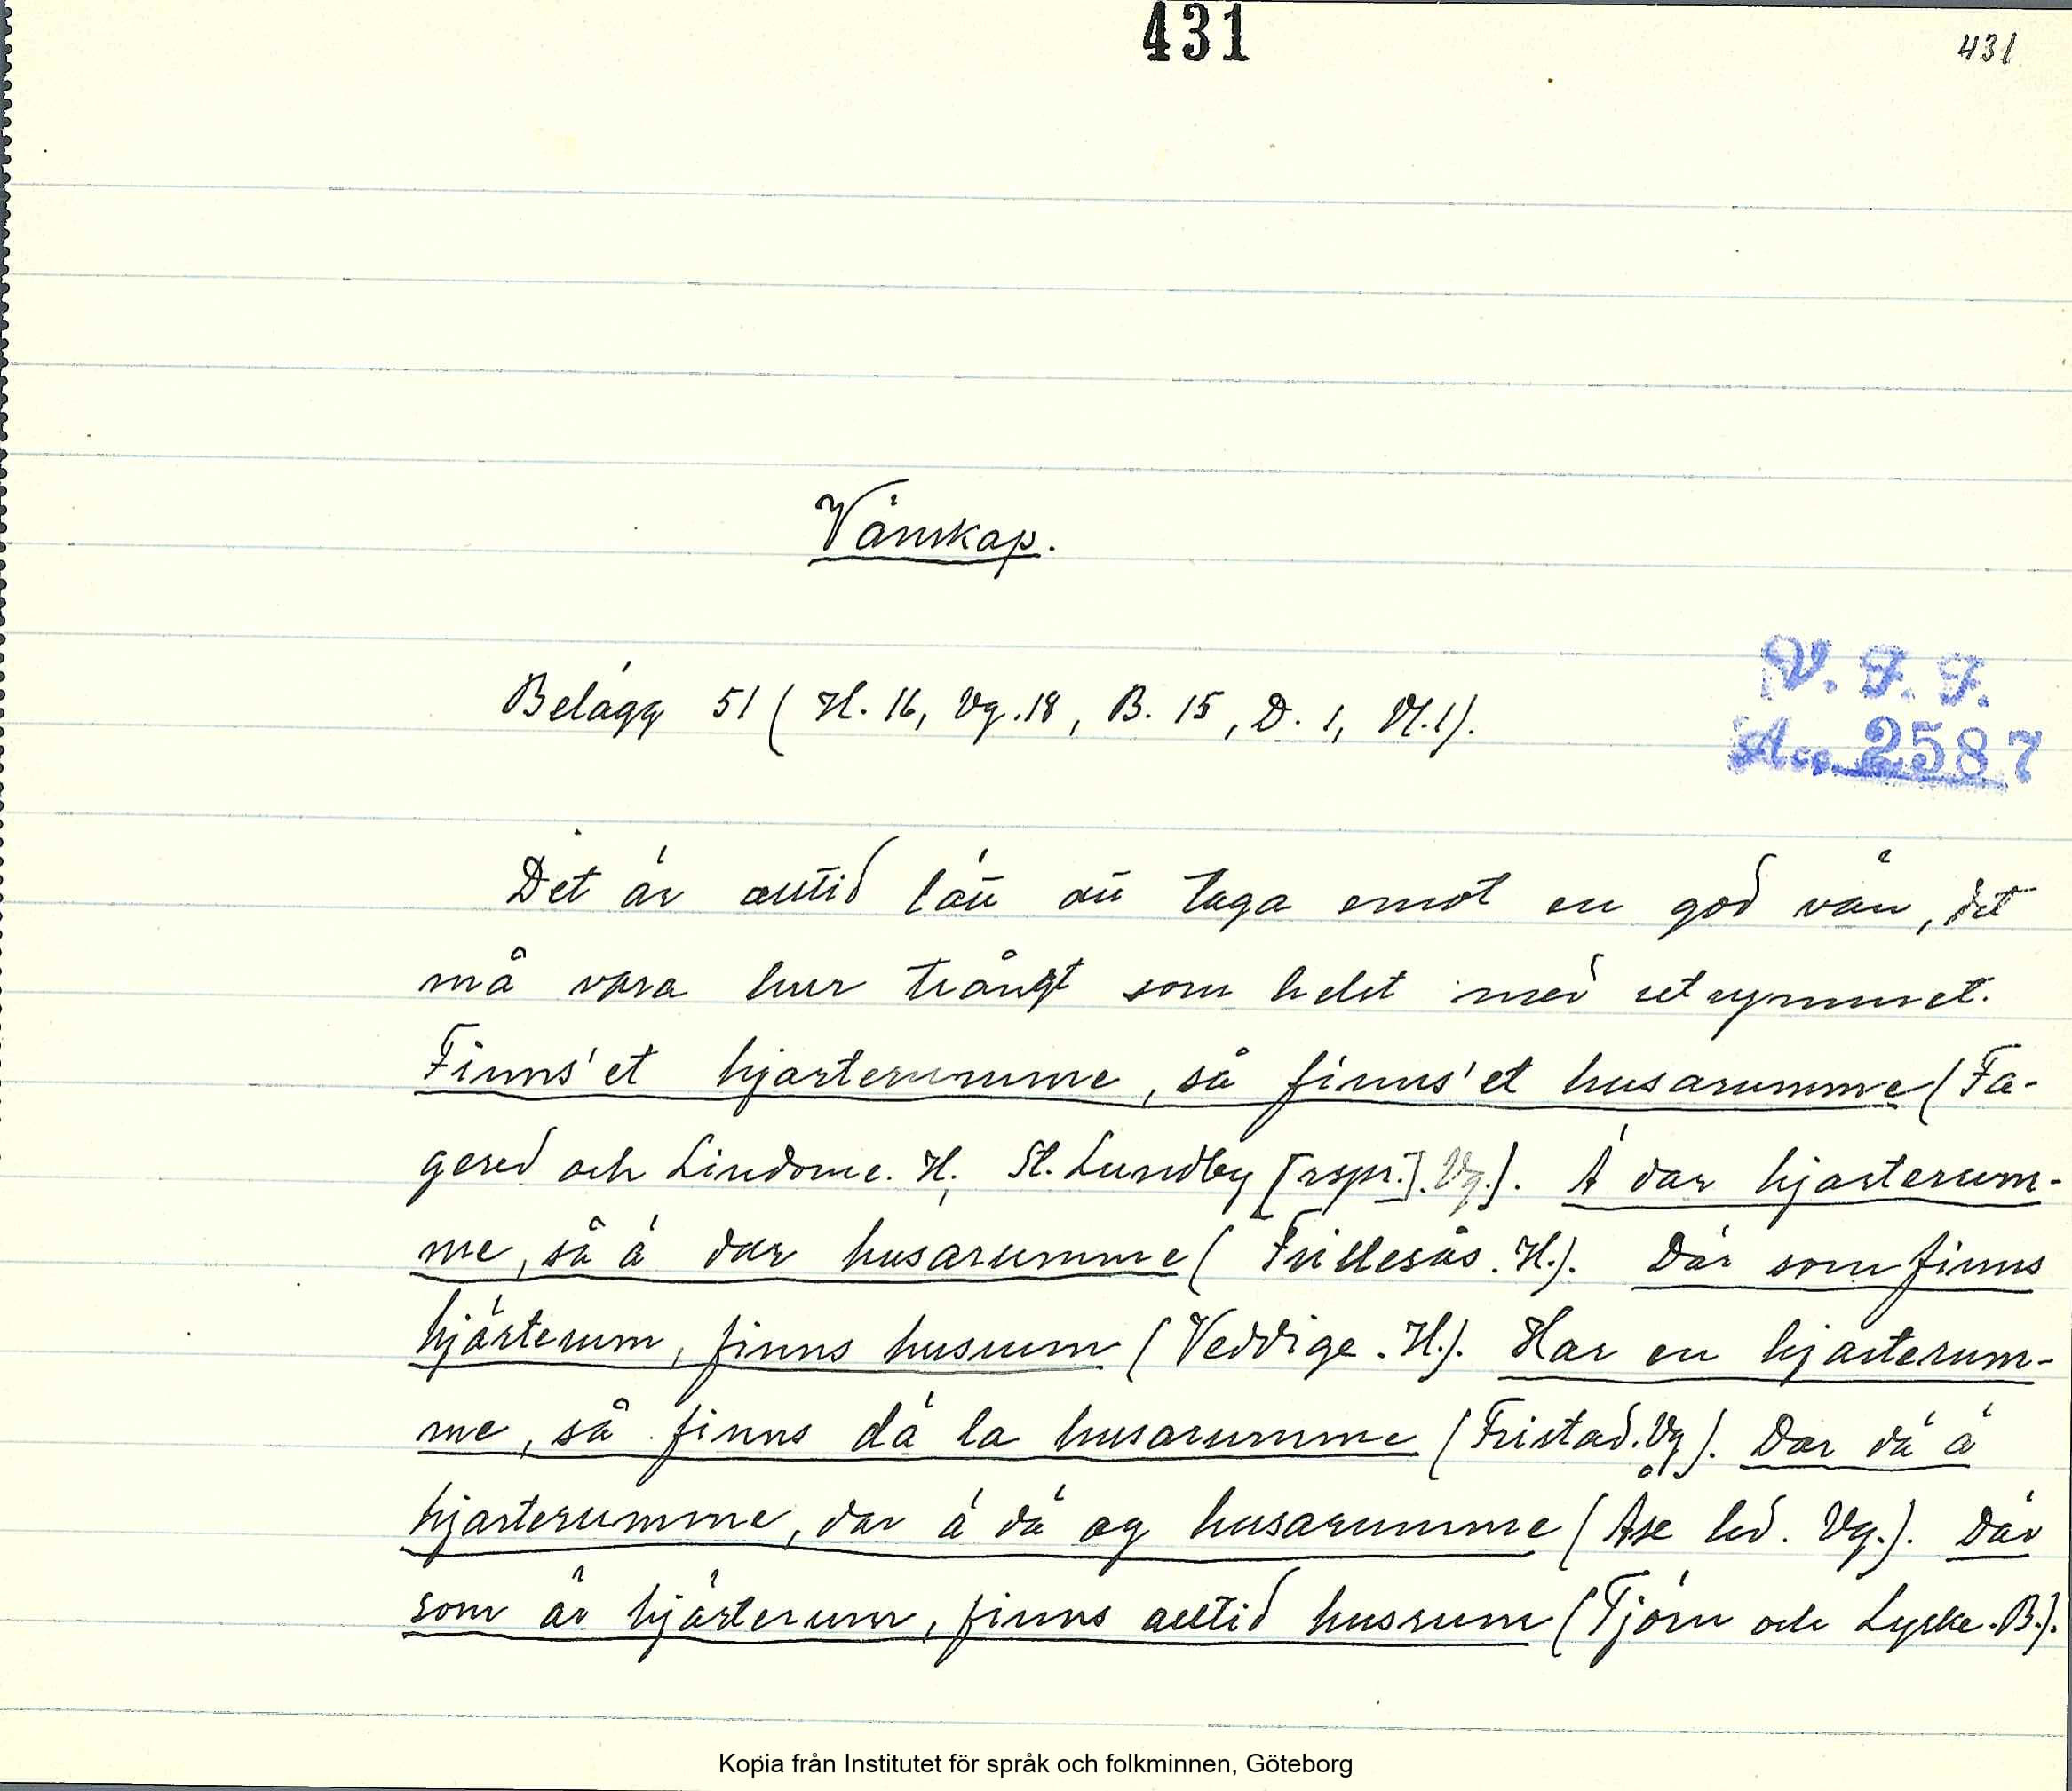 431
431
Vänskap.
Belägg 51 (H. 16, Vg. 18, B. 15, D. 1, Vl. 1).
V. F. F.
Acc. 2587
Det är alltid lätt att taga emot en god vän, det
må vara hur trångt som helst med utrymmet.
Finns'et hjarterumme, så finns'et husarumme (Fa-
gered och Lindome. H; St. Lundby [rspr.]. Vg.). Ä dar hjarterum-
me, så ä dar husarumme (Frillesås. H.). Där som finns
hjärterum, finns husrum (Veddige. H.). Har en hjarterum-
me, så finns dä la husarumme (Fristad. Vg). Dar dä ä
hjarterumme, dar ä dä og husarumme (Åse hd. Vg.). Där
som är hjärterum, finns alltid husrum (Tjörn och Lycke. B.).
Kopia från Institutet för språk och folkminnen, Göteborg